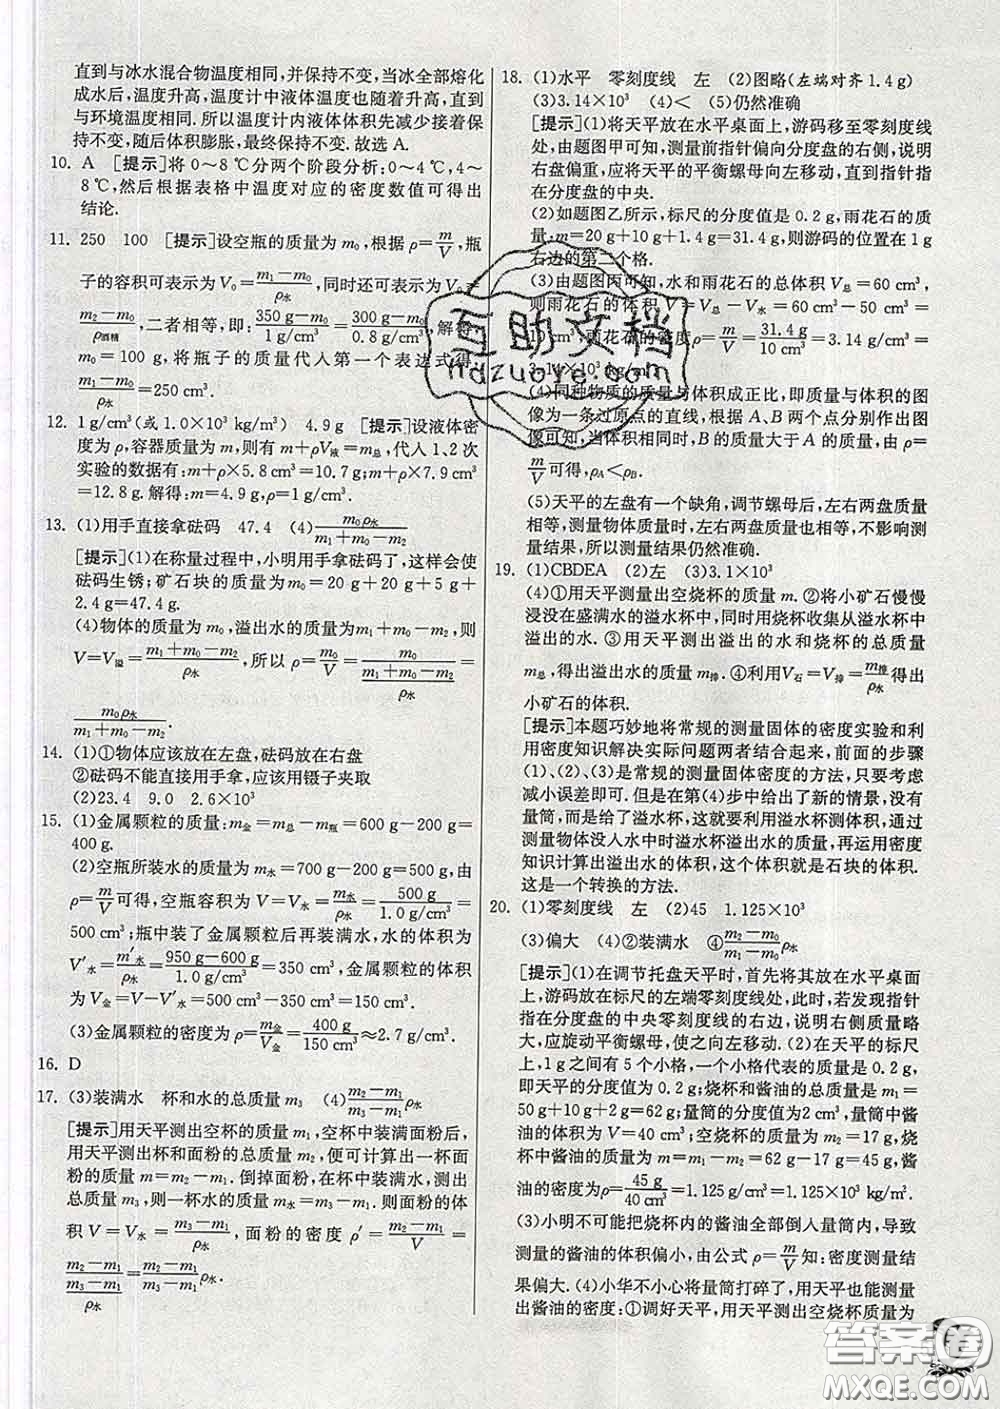 直到与冰水混合物温度相同,并保持不变,当冰全部熔化
成水后,温度升高,温度计中液体温度也随着升高,直到
与环境温度相同.所以温度计内液体体积先减少接着保
持不变,随后体积膨胀,最终保持不变.故选A.
10. A [提示]将0～8℃分两个阶段分析:0～4℃,4～
8℃,然后根据表格中温度对应的密度数值可得出
结论.
11. 250 100 [提示]设空瓶的质量为m₀,根据ρ=m/V,瓶
子的容积可表示为V₀=(m₁-m₀)/ρ水,同时还可表示为V₀=
(m₂-m₀)/ρ酒精,二者相等,即:(350 g-m₀)/(1 g/cm³)=(300 g-m₀)/(0.8 g/cm³),解得
m₀=100 g,将瓶子的质量代入第一个表达式得,
(m₁-m₀)/ρ水=250 cm³.
12. 1 g/cm³(或1.0×10³ kg/m³) 4.9 g [提示]设液体密
度为ρ,容器质量为m,则有m+ρV液=m总,代入1、2次
实验的数据有:m+ρ×5.8 cm³=10.7 g;m+ρ×7.9 cm³
=12.8 g.解得:m=4.9 g,ρ=1 g/cm³.
13. (1)用手直接拿砝码 47.4 (4)m₀ρ水/(m₁+m₀-m₂)
[提示](1)在称量过程中,小明用手拿砝码,这样会使
砝码生锈;矿石块的质量为m₀=20 g+20 g+5 g+
2.4 g=47.4 g.
(4)物体的质量为m₀,溢出水的质量为m₁+m₀-m₂,则
V=V溢=(m₁+m₀-m₂)/ρ水,所以ρ=m/V=m₀/((m₁+m₀-m₂)/ρ水)=
m₀ρ水/(m₁+m₀-m₂).
14. (1)①物体应该放在左盘,砝码放在右盘
②砝码不能直接用手拿,应该用镊子夹取
(2)23.4 9.0 2.6×10³
15. (1)金属颗粒的质量:m金=m总-m瓶=600 g-200 g=
400 g.
(2)空瓶所装水的质量为m水=700 g-200 g=500 g,由
ρ=m/V可得,空瓶容积为V=V水=m水/ρ水=500 g/(1.0 g/cm³)=
500 cm³;瓶中装了金属颗粒后再装满水,水的体积为
V′水=m′水/ρ水=(950 g-600 g)/(1.0 g/cm³)=350 cm³,金属颗粒的体积
为V金=V-V′水=500 cm³-350 cm³=150 cm³.
(3)金属颗粒的密度为ρ=m金/V金=400 g/150 cm³≈2.7 g/cm³.
16. D
17. (3)装满水 杯和水的总质量m₃ (4)(m₂-m₁)/(m₃-m₁)ρ水
[提示]用天平测出空杯的质量m₁,空杯中装满面粉后,
用天平测出杯和面粉的总质量m₂,便可计算出一杯面
粉的质量m=m₂-m₁.倒掉面粉,在杯中装满水,测出
总质量m₃,则一杯水的质量m水=m₃-m₁.则面粉的体
积V=V水=(m₃-m₁)/ρ水,面粉的密度ρ′=(m₂-m₁)/V=
(m₂-m₁)/((m₃-m₁)/ρ水)=(m₂-m₁)/(m₃-m₁)ρ水.
18. (1)水平 零刻度线 左 (2)图略(左端对齐1.4 g)
(3)3.14×10³ (4)< (5)仍然准确
[提示](1)将天平放在水平桌面上,游码移至零刻度线
处,由题图甲可知,测量前指针偏向分度盘的右侧,说明
右盘偏重,应将天平的平衡螺母向左移动,直到指针指
在分度盘的中央.
(2)如题图乙所示,标尺的分度值是0.2 g,雨花石的质
量:m=20 g+10 g+1.4 g=31.4 g,则游码的位置在1 g
右边的第二个格.
(3)由题图丙可知,水和雨花石的总体积V总=60 cm³,
则雨花石的体积V=V总-V水=60 cm³-50 cm³=
10 cm³,雨花石的密度ρ=m/V=31.4 g/10 cm³=3.14 g/cm³=
3.14×10³ kg/m³.
(4)同种物质的质量与体积成正比,即质量与体积的图
像为一条过原点的直线,根据A、B两个点分别作出图
像可知,当体积相同时,B的质量大于A的质量,由ρ=
m/V可得,ρA<ρB.
(5)天平的左盘有一个缺角,调节螺母后,左右两盘质量
相等,测量物体质量时,左右两盘质量也相等,不影响测
量结果,所以测量结果仍然准确.
19. (1)CBDEA (2)左 (3)3.1×10³
(4)①用天平测量出空烧杯的质量m.②将小矿石慢慢
浸没在盛满水的溢水杯中,同时用烧杯收集从溢水杯中
溢出的水.③用天平测出溢出的水和烧杯的总质量
m总,得出溢出水的质量m排.④利用V石=V排=m排/ρ水得出
小矿石的体积.
[提示]本题巧妙地将常规的测量固体的密度实验和利
用密度知识解决实际问题两者结合起来,前面的步骤
(1)、(2)、(3)是常规的测量固体密度的方法,只要考虑
减小误差即可.但是在第(4)步中给出了新的情景,没有
量筒,而是给了溢水杯,这就要利用溢水杯测体积,通过
测量物体没入水中时溢水杯溢出水的质量,再运用密度
知识计算出溢出水的体积,这个体积就是石块的体积.
这是一个转换的方法.
20. (1)零刻度线 左 (2)45 1.125×10³
(3)偏大 (4)②装满水 ④(m₂-m₀)/(m₁-m₀)ρ水
[提示](1)在调节托盘天平时,首先将其放在水平桌面
上,游码放在标尺的左端零刻度线处,此时,若发现指针
指在分度盘的中央零刻度线的右边,说明右侧质量略
大,应旋动平衡螺母,使之向左移动.(2)在天平的标尺
上,1 g之间有5个小格,一个小格代表的质量是0.2 g,
即天平的分度值为0.2 g;烧杯和酱油的总质量m₁=
50 g+10 g+2 g=62 g;量筒的分度值为2 cm³,量筒中酱
油的体积为V=40 cm³;空烧杯的质量为m₂=17 g,烧
杯中酱油的质量为m=m₁-m₂=62 g-17 g=45 g,酱
油的密度为ρ=45 g/40 cm³=1.125 g/cm³=1.125×10³ kg/m³.
(3)小明不可能把烧杯内的酱油全部倒入量筒内,导致
测量的酱油的体积偏小,由公式ρ=m/V知:密度测量结
果偏大.(4)小华不小心将量筒打碎了,用天平也能测量
出酱油的密度:①调好天平,用天平测出空烧杯质量为
互助文档
hdzuoye.com
答案圈
MXQE.COM